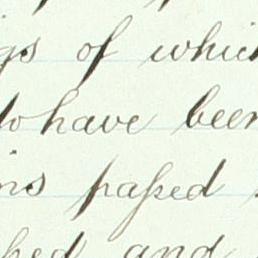 gs of which
to have been
ns passed
hed and